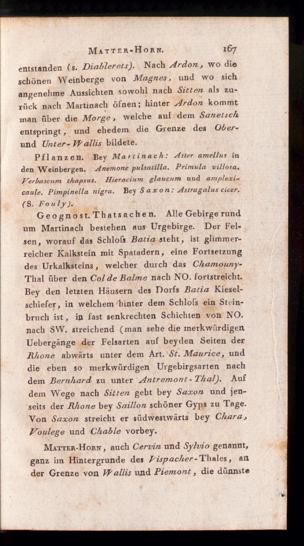 MATTER-HORN. 167
entstanden (s. Diablerets). Nach Ardon, wo die
schönen Weinberge von Magnes, und wo sich
angenehme Aussichten sowohl nach Sitten als zu-
rück nach Martinach öfnen; hinter Ardon kommt
man über die Morge, welche auf dem Sanetsch
entspringt, und ehedem die Grenze des Ober-
und Unter-Wallis bildete.
Pflanzen. Bey Martinach: Aster amellus in
den Weinbergen. Anemone pulsatilla. Primula villosa.
Verbascum thapsus. Hieracium glaucum und amplexi-
caule. Pimpinella nigra. Bey Saxon: Astragalus cicer.
(S. Fouly).
Geognost. Thatsachen. Alle Gebirge rund
um Martinach bestehen aus Urgebirge. Der Fel-
sen, worauf das Schloſs Batia steht, ist glimmer-
reicher Kalkstein mit Spatadern, eine Fortsetzung
des Urkalksteins, welcher durch das Chamouny-
Thal über den Col de Balme nach NO. fortstreicht.
Bey den letzten Häusern des Dorfs Batia Kiesel-
schiefer, in welchem hinter dem Schloſs ein Stein-
bruch ist, in fast senkrechten Schichten von NO.
nach SW. streichend (man sehe die merkwürdigen
Uebergänge der Felsarten auf beyden Seiten der
Rhone abwärts unter dem Art. St. Maurice, und
die eben so merkwürdigen Urgebirgsarten nach
dem Bernhard zu unter Antremont-Thal). Auf
dem Wege nach Sitten geht bey Saxon und jen-
seits der Rhone bey Saillon schöner Gyps zu Tage.
Von Saxon streicht er südwestwärts bey Chara,
Voulege und Chable vorbey.
MATTER-HORN, auch Cervin und Sylvio genannt,
ganz im Hintergrunde des Vispacher-Thales, an
der Grenze von Wallis und Piemont, die dünnste